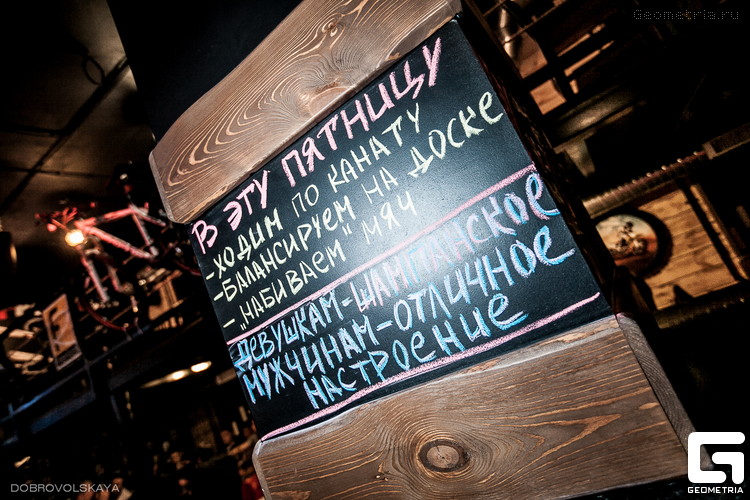 Geometria.ru
В ЭТУ ПЯТНИЦУ
-ХОДИМ ПО КАНАТУ
-БАЛАНСИРУЕМ НА ДОСКЕ
- „НАБИВАЕМ" МЯЧ
ДЕВУШКАМ-ШАМПАНСКОЕ
МУЖЧИНАМ-ОТЛИЧНОЕ
НАСТРОЕНИЕ
DOBROVOLSKAYA
GEOMETRIA